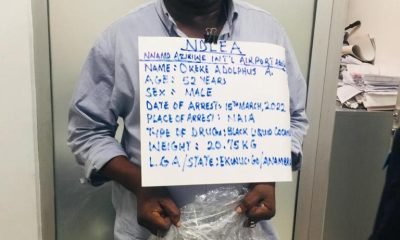 NDLEA
NNAMDI AZIKIWE INT'L AIRPORT ABUJA
NAME: OKEKE ADOLPHUS A.
AGE: 52 YEARS
SEX: MALE
DATE OF ARREST: 15TH MARCH, 2022
PLACE OF ARREST: NAIA
TYPE OF DRUG: BLACK LIQUID COCAINE
WEIGHT: 20.75KG
L.G.A/STATE: EKWUSIGO/ANAMBRA